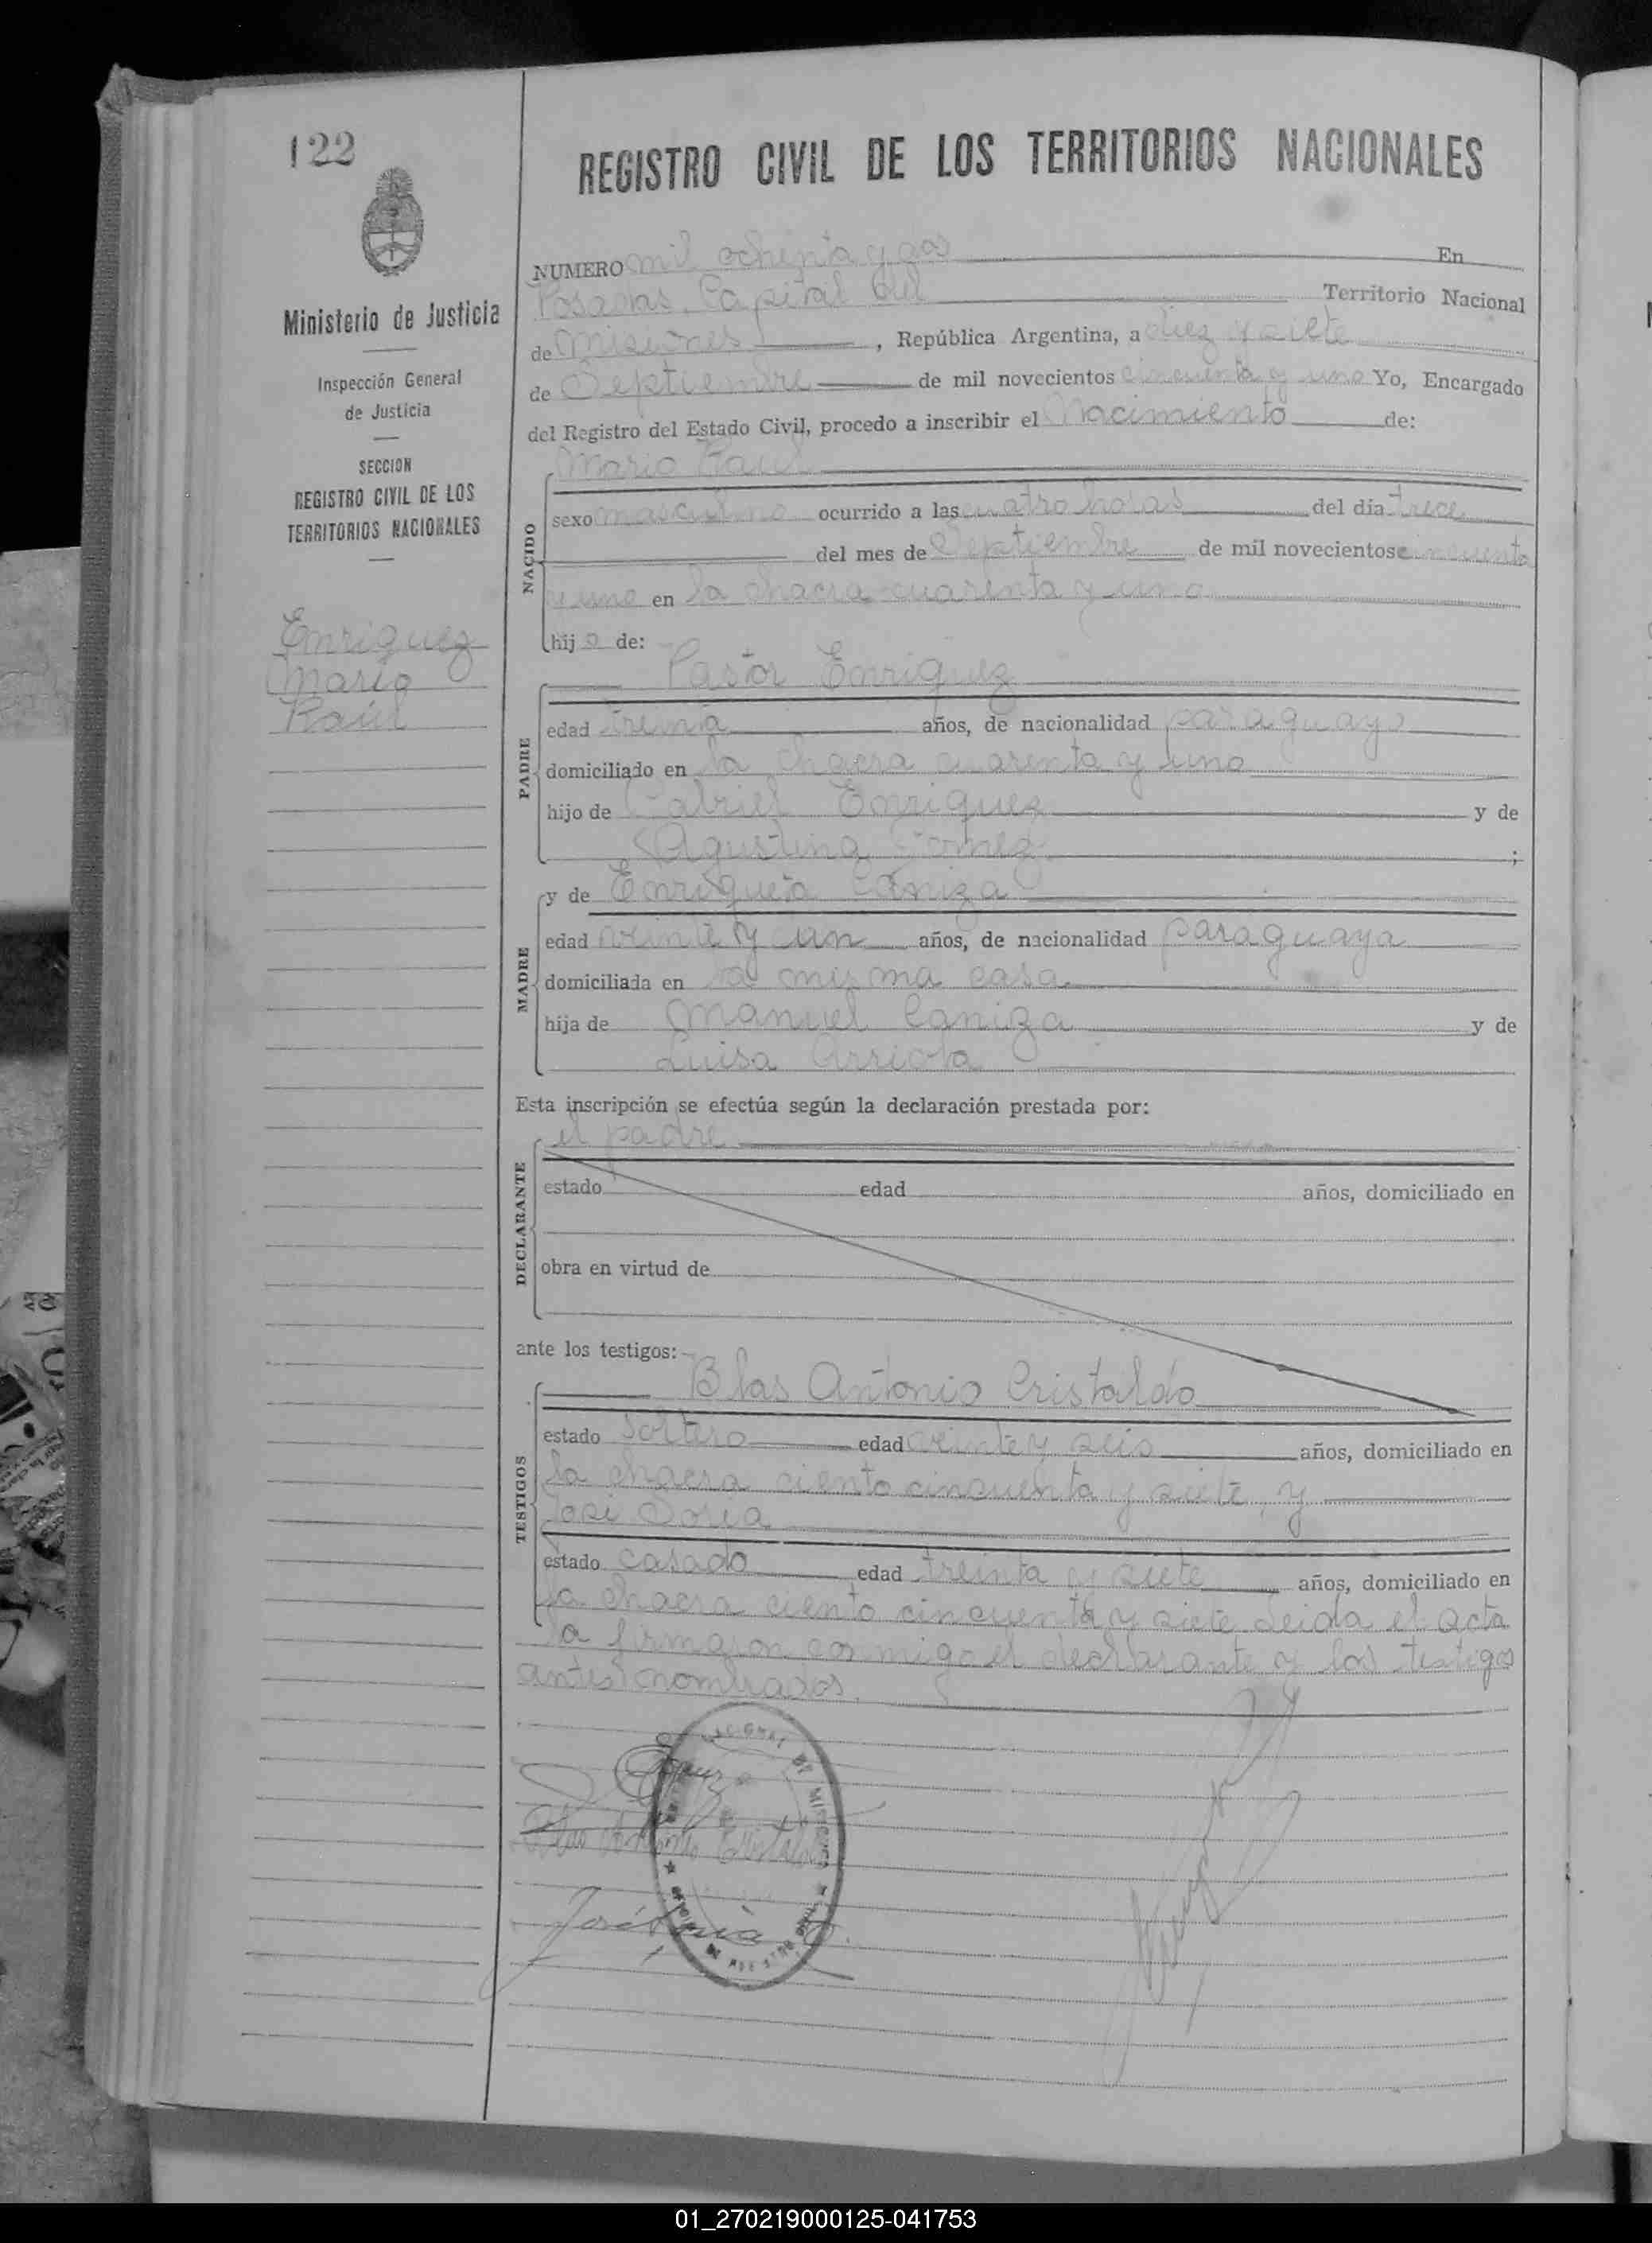 122
REGISTRO CIVIL DE LOS TERRITORIOS NACIONALES
Ministerio de Justicia
Inspección General
de Justicia
SECCION
REGISTRO CIVIL DE LOS
TERRITORIOS NACIONALES
Enriquez
Mario
Raúl
NUMERO mil ochenta y dos En
Posadas, Capital del Territorio Nacional
de Misiones, República Argentina, a diez y siete
de Septiembre de mil novecientos cincuenta y uno Yo, Encargado
del Registro del Estado Civil, procedo a inscribir el Nacimiento de:
NACIDO
Mario Raúl
sexo masculino ocurrido a las cuatro horas del día trece
del mes de Septiembre de mil novecientos cincuenta
y uno en la chacra cuarenta y uno
hijo de:
PADRE
Pastor Enriquez
edad treinta años, de nacionalidad paraguayo
domiciliado en la chacra cuarenta y uno
hijo de Gabriel Enriquez y de
Agustina Gomez ;
MADRE
y de Enriqueta Caniza
edad veinte y un años, de nacionalidad paraguaya
domiciliada en la misma casa
hija de Manuel Caniza y de
Luisa Arriola
Esta inscripción se efectúa según la declaración prestada por:
DECLARANTE
el padre
estado edad años, domiciliado en
obra en virtud de
ante los testigos:
TESTIGOS
Blas Antonio Cristaldo
estado soltero edad veinte y seis años, domiciliado en
la chacra ciento cincuenta y siete, y
José Doria
estado casado edad treinta y siete años, domiciliado en
la chacra ciento cincuenta y siete Leida el acta
la firmaron conmigo el declarante y los testigos
antes nombrados.
Blas Antonio Cristaldo
José
01_270219000125-041753